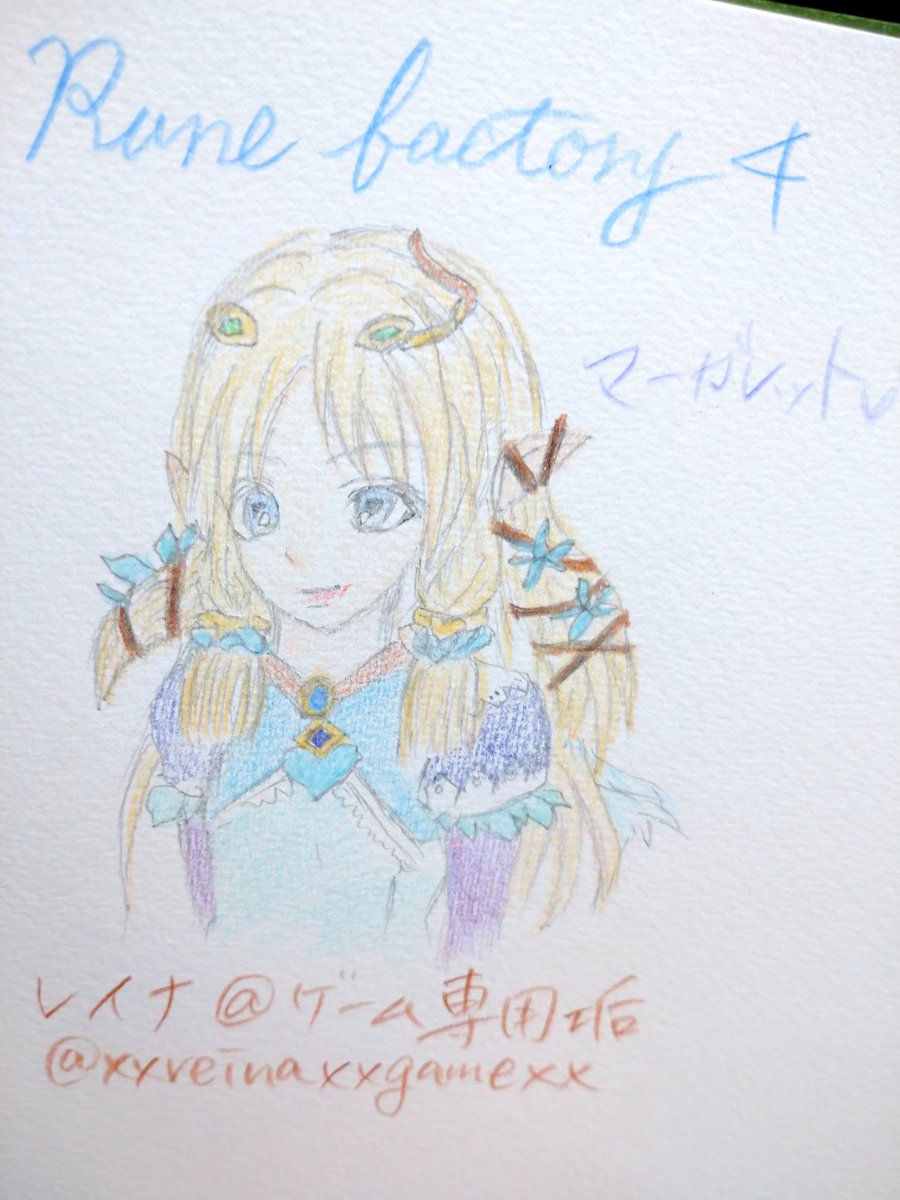 Rune factory 4
マーガレット♡
レイナ@ゲーム専用垢
@xxreinaxxgamexx